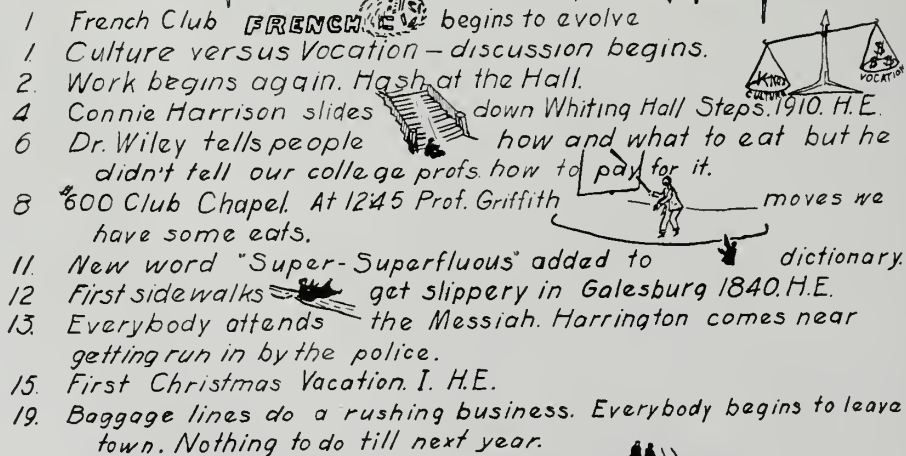 1 French Club FRENCH begins to evolve
1. Culture versus Vocation – discussion begins.
2. Work begins again. Hash at the Hall.
KNOX
CULTURE
$
$ $
VOCATION
4 Connie Harrison slides down Whiting Hall Steps. 1910. H.E.
6 Dr. Wiley tells people how and what to eat but he
didn't tell our college profs. how to pay for it.
8 $600 Club Chapel. At 12:45 Prof. Griffith moves we
have some eats.
11. New word "Super-Superfluous" added to dictionary.
12 First sidewalks get slippery in Galesburg 1840. H.E.
13. Everybody attends the Messiah. Harrington comes near
getting run in by the police.
15. First Christmas Vacation. I. H.E.
19. Baggage lines do a rushing business. Everybody begins to leave
town. Nothing to do till next year.